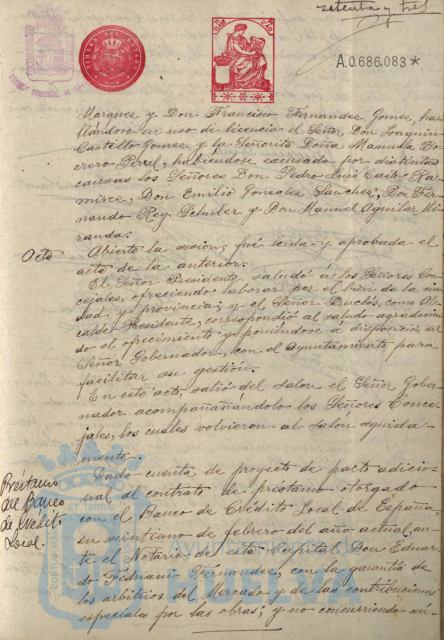 setenta y tres
TIMBRE DEL ESTADO
A.0.686,083*
Marquez y Don Francisco Fernandez Gomez, ha-
llándose en uso de licencia el Señor Don Joaquin
Castillo Gomez y la Señorita Doña Manuela Bo-
rrero Peral, habiéndose excusado por distintas
causas los Señores Don Pedro Luis Ra-
mirez, Don Emilio Gonzalez Sanchez, Don Fer-
nando Rey Schuiler y Don Manuel Aguilar Mi-
randa.
Acta
Abierta la sesion, fué leida y aprobada el
acta de la anterior.
El Señor Presidente, saludó á los Señores Con-
cejales, ofreciendo laborar por el bien de la ciu-
dad y provincia; y el Señor Duclós, como Al-
calde-Presidente, correspondió al saludo agradecien-
do el ofrecimiento y poniéndose á disposición del
Señor Gobernador, con el Ayuntamiento para
facilitar su gestión.
En este acto, salió del salon el Señor Gober-
nador acompañándolo los Señores Conce-
jales, los cuales volvieron al salon seguida-
mente.
Préstamo
del Banco
de Crédito
Local.
Dado cuenta de proyecto de pacto adicio-
nal al contrato de préstamo otorgado
con el Banco de Crédito Local de España,
en veintiuno de febrero del año actual, an-
te el Notario de esta Capital, Don Eduar-
do Fedriani Fernandez, con la garantia de
los arbitrios del Mercado y de las contribuciones
especiales por las obras; y no concurriendo nú-